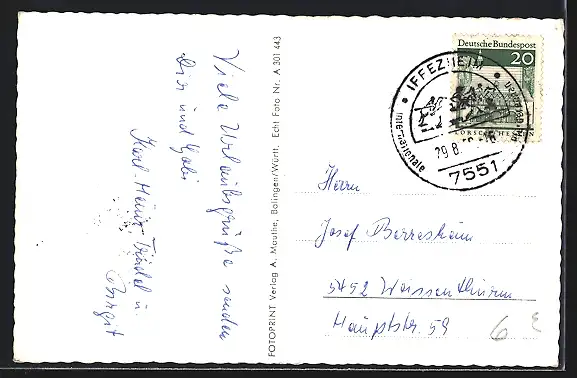 Viele Urlaubsgrüße senden
Dir und Gabi
Karl-Heinz u.
Birgit
FOTOPRINT Verlag A. Mauthe, Balingen/Württ. Echt Foto Nr. A 301 443
Deutsche Bundespost
20
LORSCH HESSEN
IFFEZHEIM
Internationale
29.8.
7551
Herrn
Josef Berresheim
5452 Weissenthurm
Hauptstr. 59
6 €